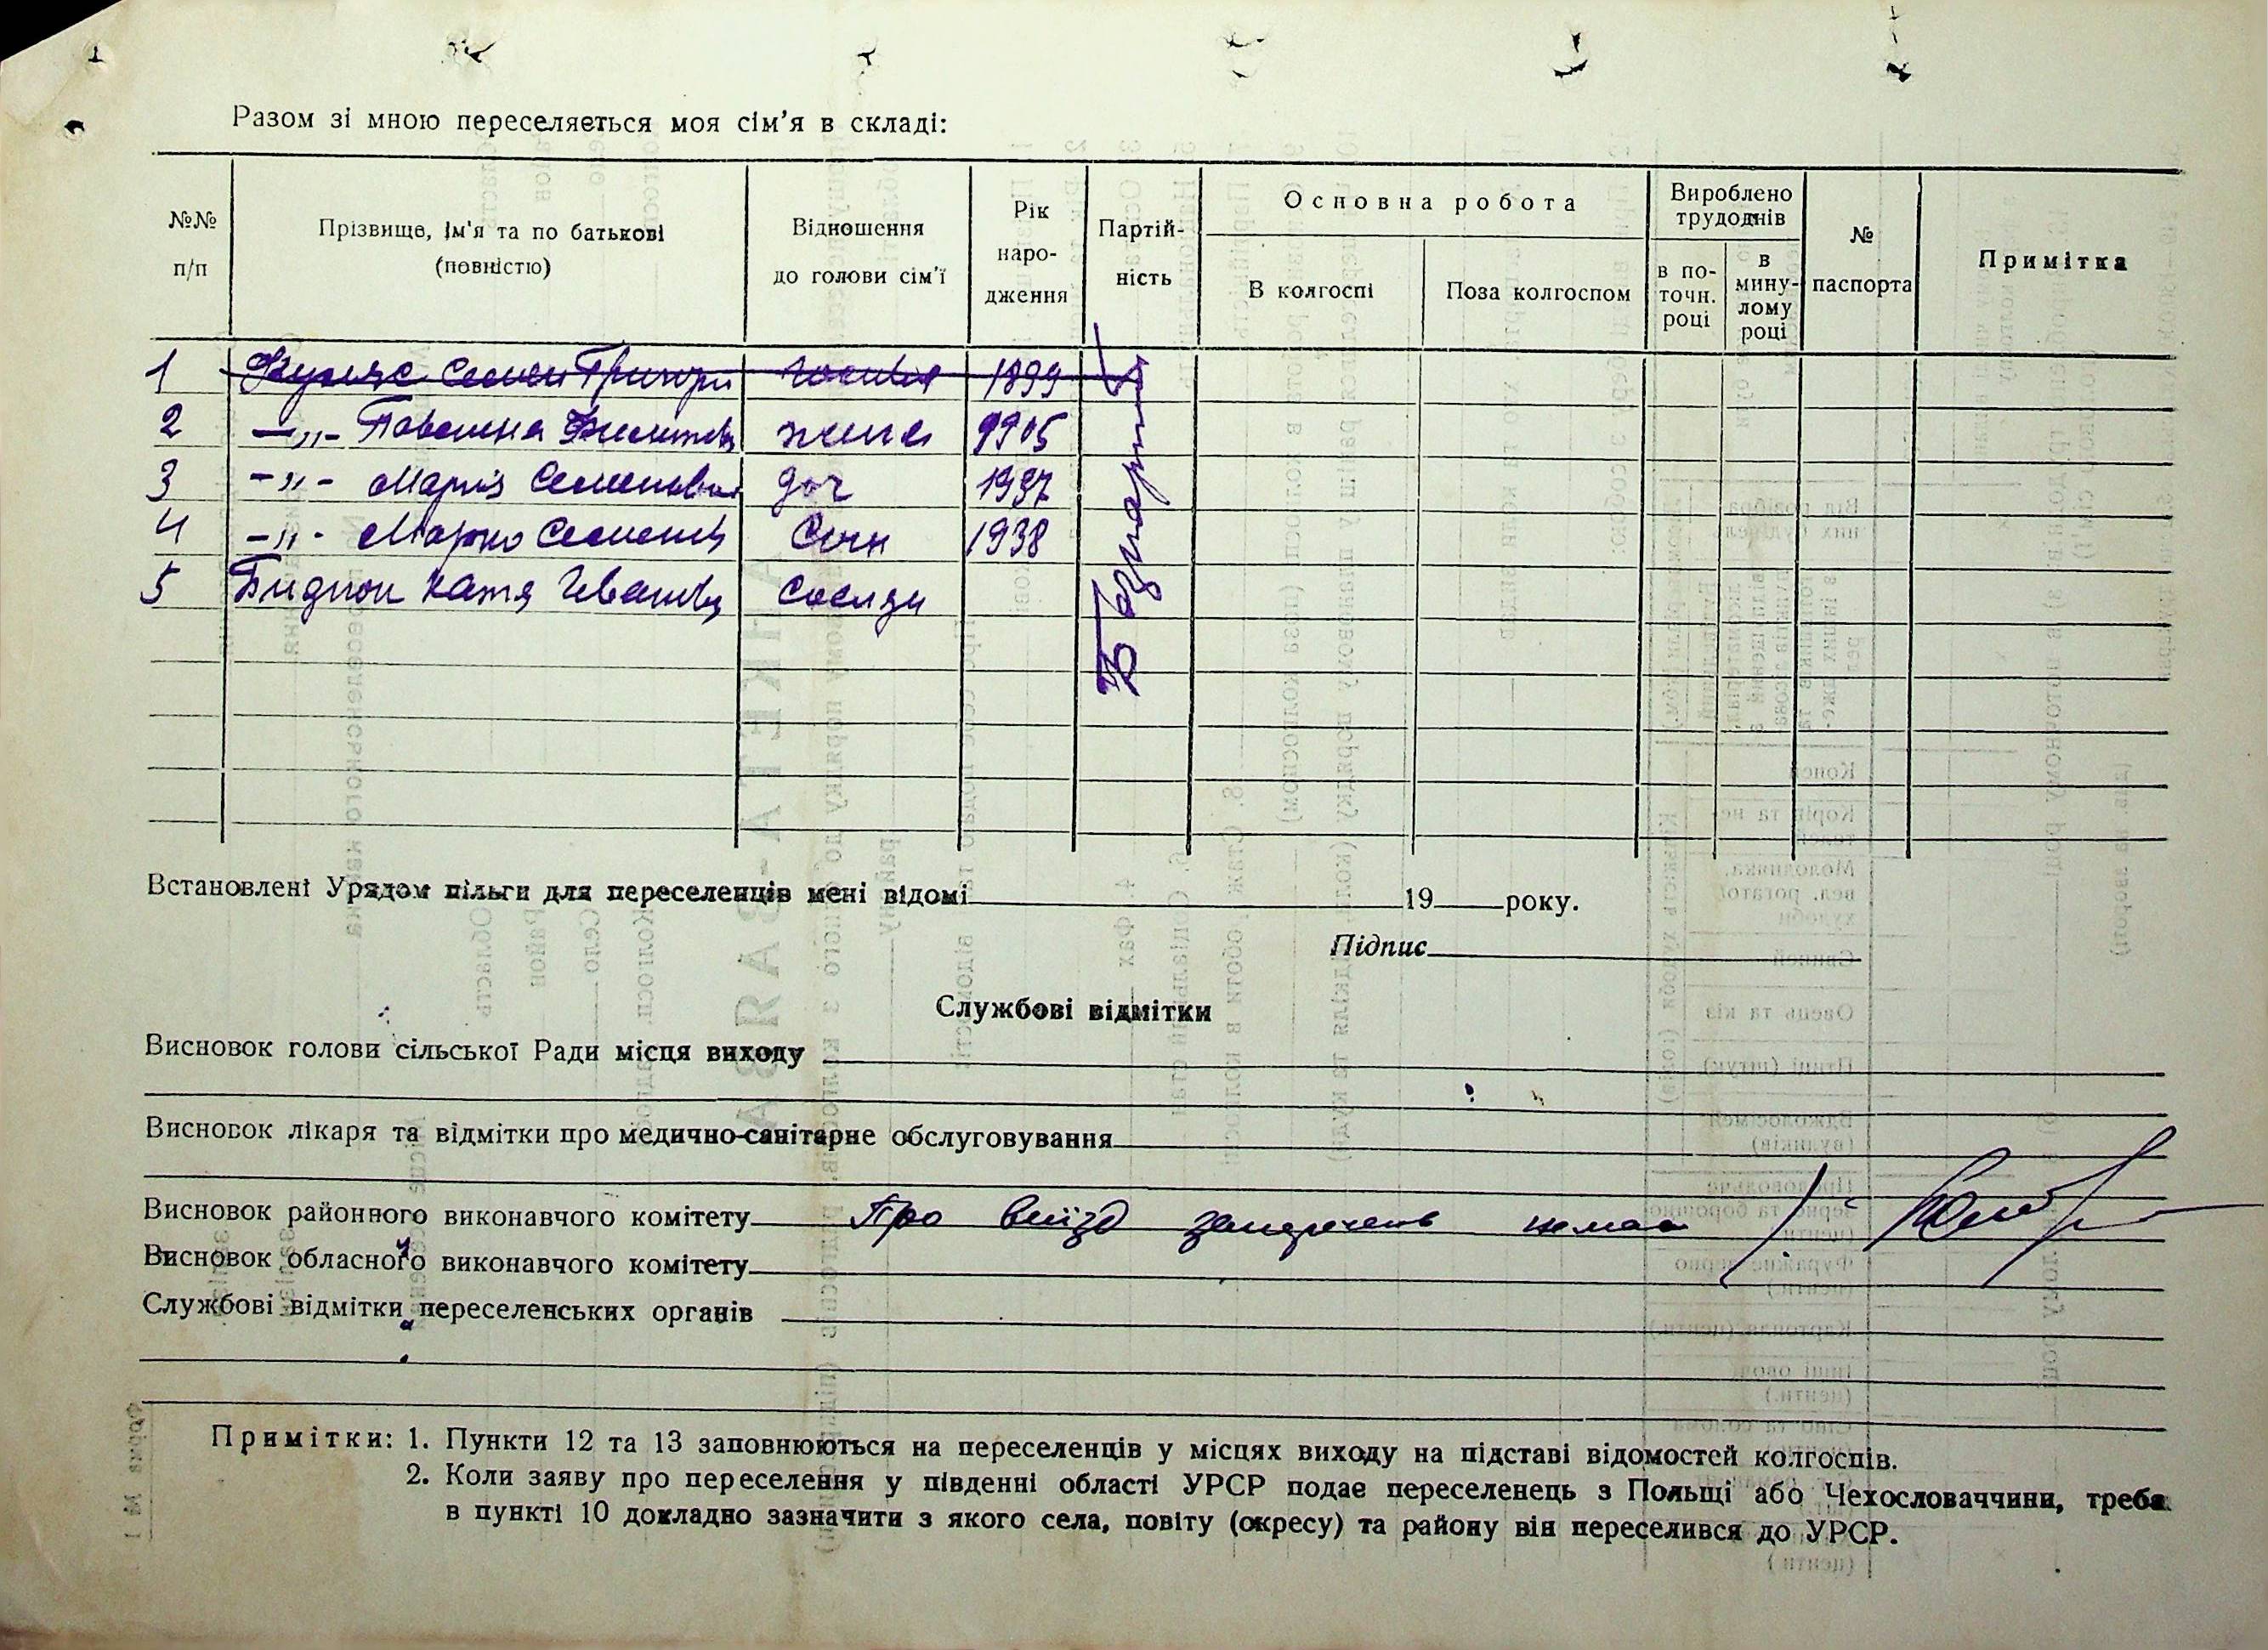 Разом зі мною переселяється моя сім'я в складі:
№№ п/п
Прізвище, ім'я та по батькові (повністю)
Відношення до голови сім'ї
Рік народження
Партійність
Основна робота
В колгоспі
Поза колгоспом
Вироблено трудоднів
в поточн. році
в минулому році
№ паспорта
Примітка
1 Семен Григори голова 1899
2 -„- Павлина жена 1905
3 -„- Марія Семеновна доч 1937
4 -„- Марко Семенов Сын 1938
5 Катя Ивановн
Встановлені Урядом пільги для переселенців мені відомі 19 року.
Підпис
Службові відмітки
Висновок голови сільської Ради місця виходу
Висновок лікаря та відмітки про медично-санітарне обслуговування
Висновок районного виконавчого комітету Про виїзд заперечень немає
Висновок обласного виконавчого комітету
Службові відмітки переселенських органів
Примітки: 1. Пункти 12 та 13 заповнюються на переселенців у місцях виходу на підставі відомостей колгоспів.
2. Коли заяву про переселення у південні області УРСР подає переселенець з Польщі або Чехословаччини, треба
в пункті 10 докладно зазначити з якого села, повіту (окресу) та району він переселився до УРСР.